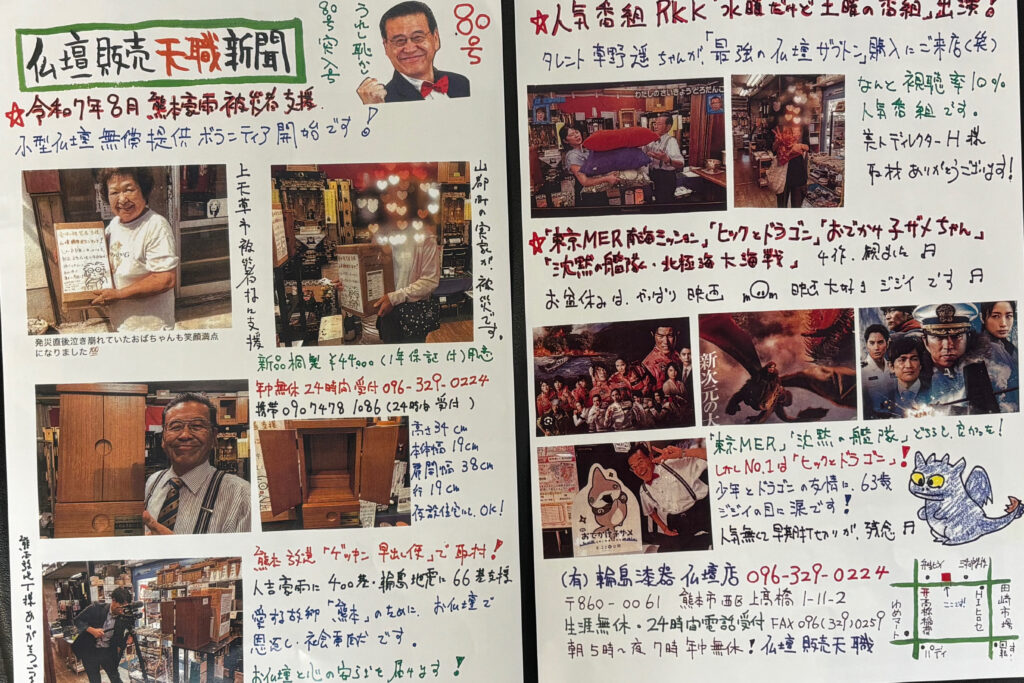 仏壇販売天職新聞
80号突入号
うれし恥かし
80号
☆令和7年8月 熊本豪雨被災者支援
小型仏壇無償提供ボランティア開始です!
上天草市被災者様に支援
山都町の実家が、被災です。
発災直後泣き崩れていたおばちゃんも笑顔満点
になりました
新品桐製 ¥44,000(1年保証付)用意
年中無休24時間受付 096-329-0224
携帯090 7478 1086(24時間受付)
高さ34cm
本体幅19cm
扉開幅38cm
行19cm
仮設住宅にも、OK!
熊本放送「ゲツキン早出し便」で取材!
人吉豪雨に400基・輪島地震に66基支援
愛する故郷「熊本」のために、お仏壇で
恩返し・社会奉仕です。
お仏壇で心の安らぎを届けます!
熊本放送T様ありがとうござ
☆人気番組RKK「水曜だけど土曜の番組」出演!
タレント草野遥ちゃんが「最強の仏壇ザブトン」購入にご来店(笑)
わたしのさいきょうどろだんご
なんと視聴率10%
人気番組です。
美人ディレクターH様
取材ありがとうございます!
☆「東京MER南海ミッション」「ヒックとドラゴン」「おでかけ子ザメちゃん」
「沈黙の艦隊・北極海大海戦」4作、観ました♬
お盆休みは、やっぱり映画 映画大好きジジイです♬
新次元の
おでかけ子ザメ
「東京MER」「沈黙の艦隊」どちらも、良かった!
しかしNo.1は「ヒックとドラゴン」!
少年とドラゴンの友情に、63歳
ジジイの目に涙です!
人気無くて早期打ち切りが、残念♬
(有)輪島漆器仏壇店 096-329-0224
〒860-0061 熊本市西区上高橋1-11-2
生涯無休・24時間電話受付 FAX096(329)0259
朝5時~夜7時年中無休!仏壇販売天職
ここです!
ゆめマート
田崎市場